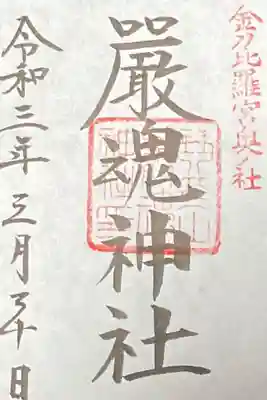 金刀比羅宮ノ奥ノ社
嚴魂神社
令和三年三月日